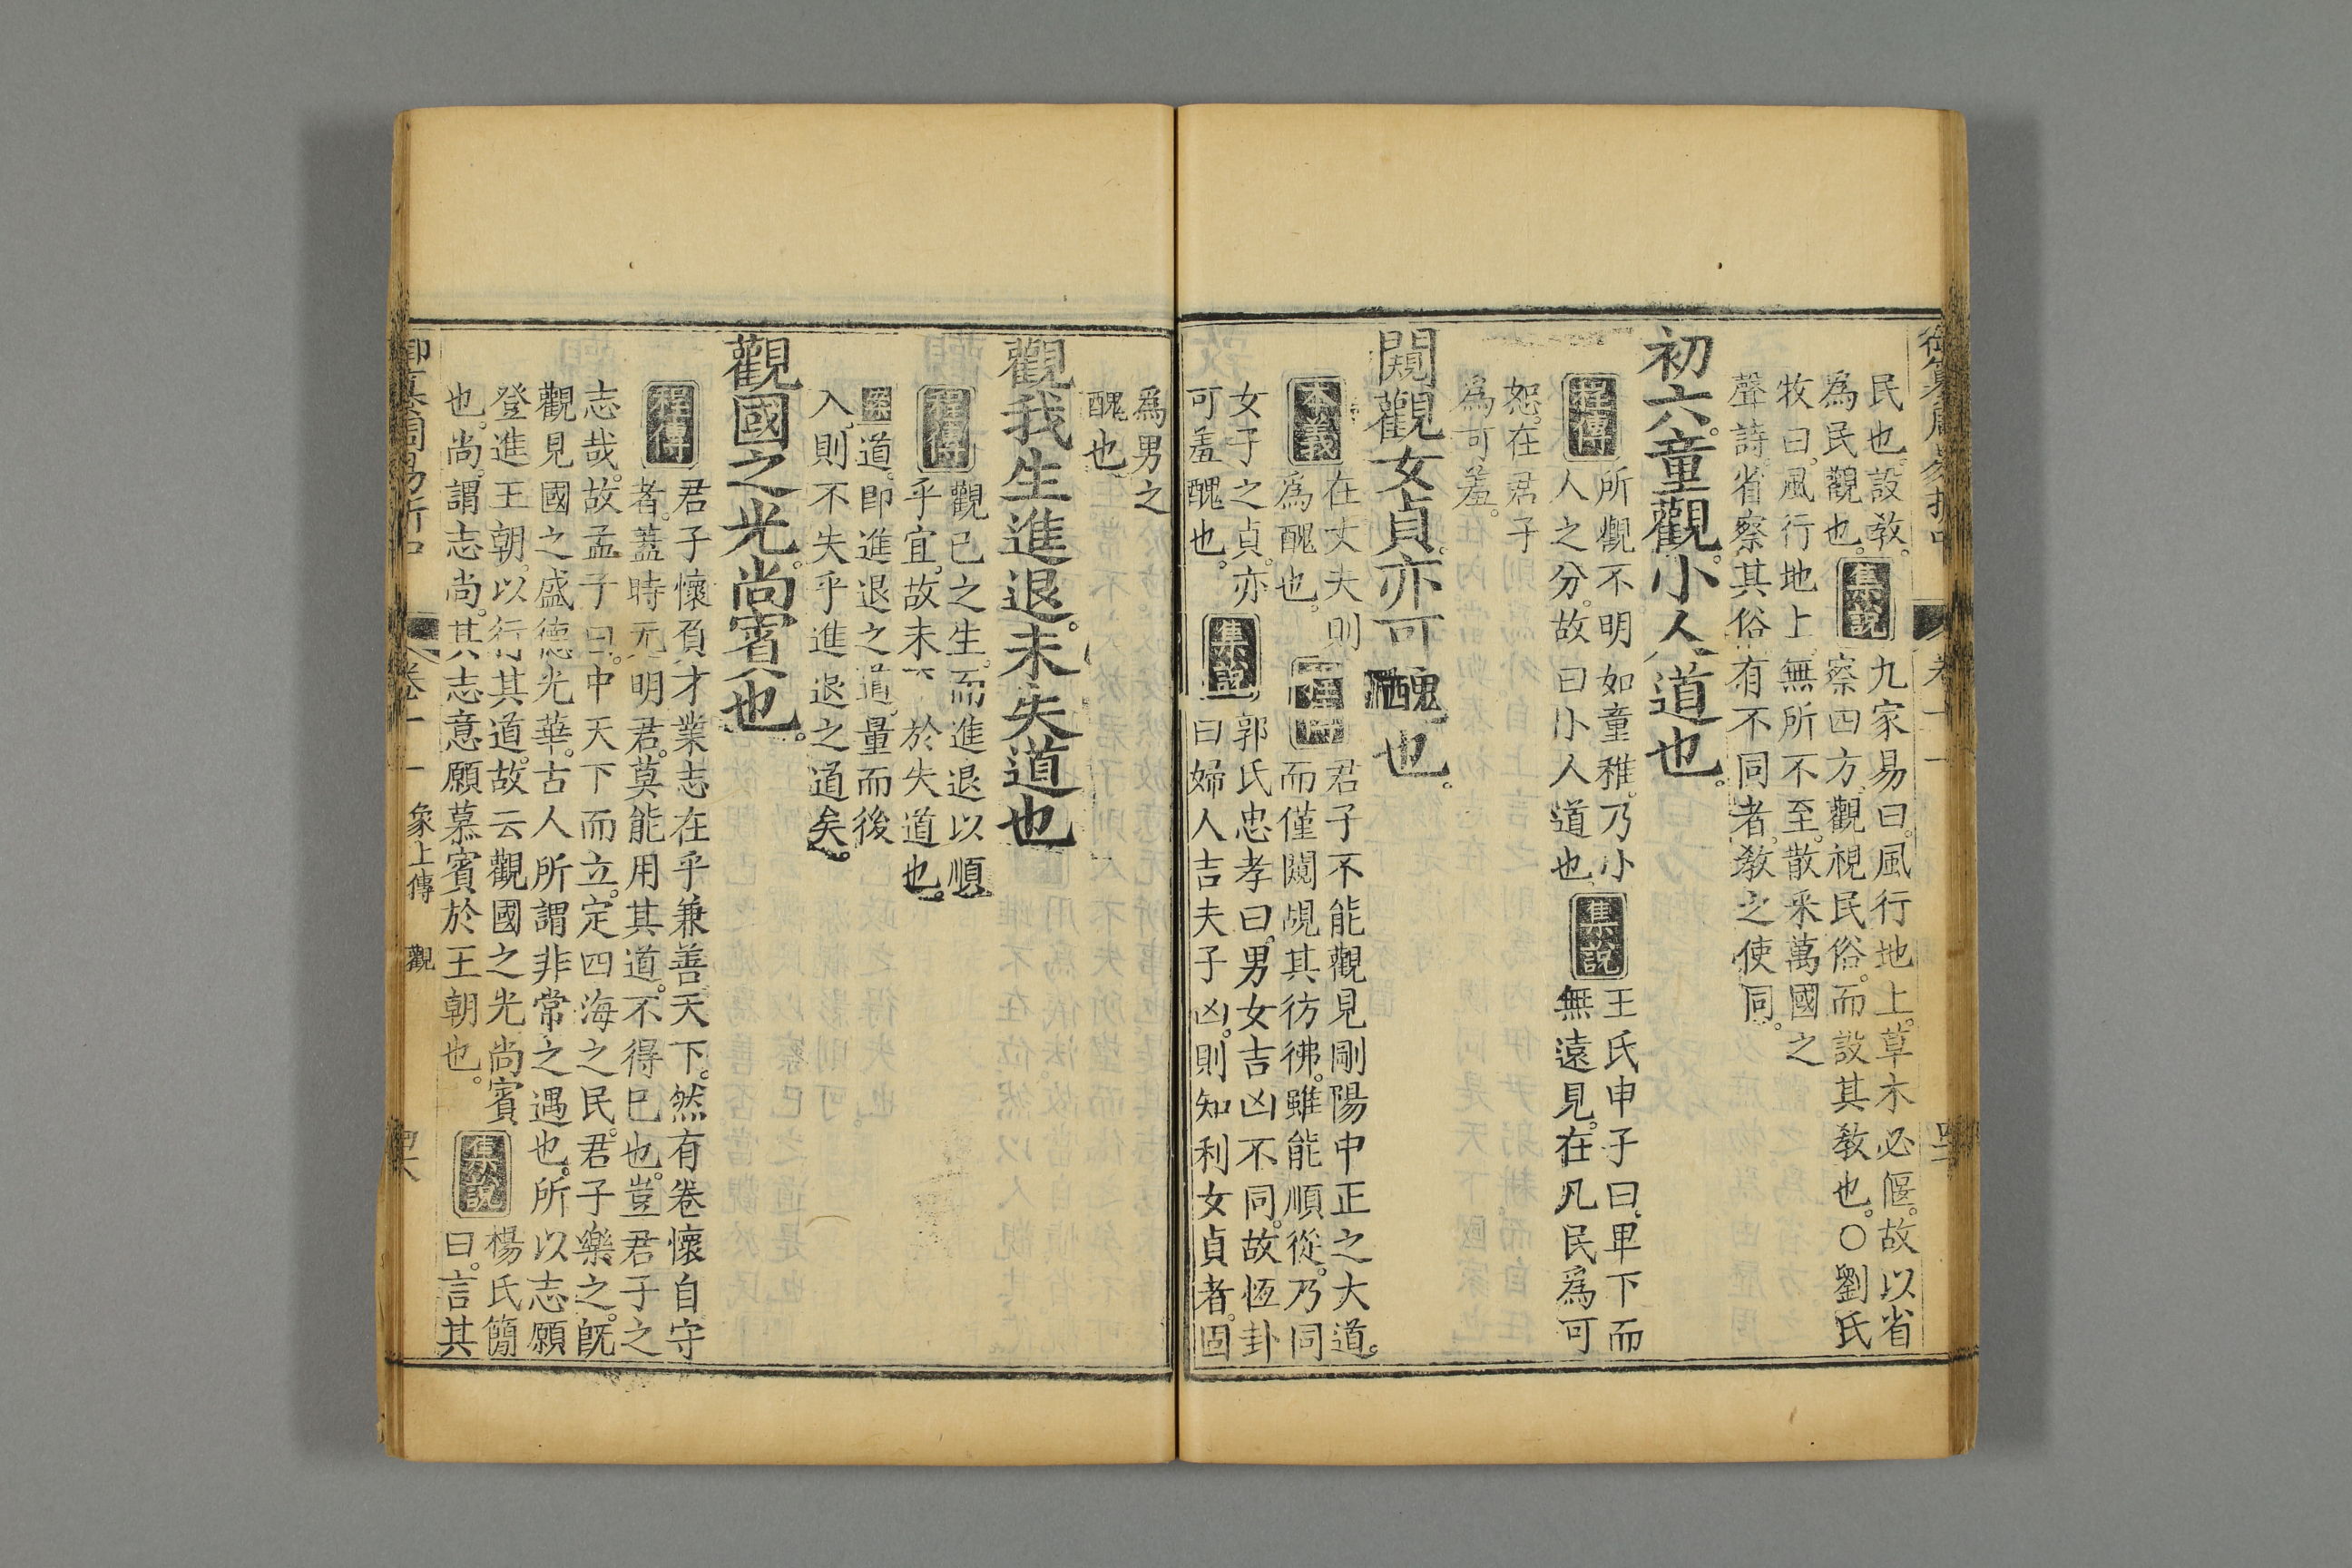 民也。設教。
爲民觀也。集說察四方。觀視民俗。而設其教也。〇劉氏
九家易曰。風行地上。草木必偃。故以省
牧曰。風行地上。無所不至。散采萬國之
聲詩。省察其俗。有不同者。教之使同。
初六童觀。小人道也。
程傳
所觀不明如童稚。乃小
人之分。故曰小人道也。
集說
王氏申子曰。卑下而
無遠見。在凡民爲可
恕。在君子
爲可羞。
闚觀女貞。亦可醜也。
本義
在丈夫則
爲醜也。
君子不能觀見剛陽中正之大道。
而僅闚覘其彷彿。雖能順從。乃同
女子之貞。亦
可羞醜也。
集說
郭氏忠孝曰。男女吉凶不同。故恆卦
曰婦人吉夫子凶。則知利女貞者。固
爲男之
醜也。
觀我生進退。未失道也
程傳
觀己之生。而進退以順
乎宜。故未 於失道也。
道。即進退之道。量而後
入。則不失乎進退之道矣。
觀國之光。尚賓也。
程傳
君子懷負才業志在乎兼善天下。然有卷懷自守
者。蓋時无明君。莫能用其道。不得已也。豈君子之
志哉。故孟子曰。中天下而立。定四海之民。君子樂之。既
觀見國之盛德光華。古人所謂非常之遇也。所以志願
登進王朝。以行其道。故云觀國之光尚賓
也。尚。謂志尚。其志意願慕賓於王朝也。
集說
楊氏簡
曰。言其
卷十一 象上傳 觀